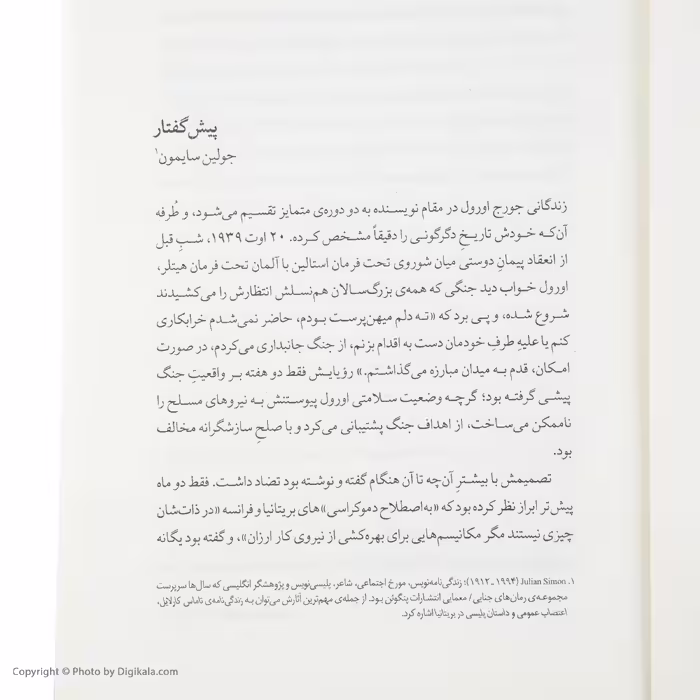 پیش‌گفتار
جولین سایمون۱
زندگانی جورج اورول در مقام نویسنده به دو دوره‌ی متمایز تقسیم می‌شود، و طُرفه
آن‌که خودش تاریخِ دگرگونی را دقیقاً مشخص کرده. ۲۰ اوت ۱۹۳۹، شبِ قبل
از انعقاد پیمانِ دوستی میان شوروی تحت فرمان استالین با آلمان تحت فرمان هیتلر،
اورول خواب دید جنگی که همه‌ی بزرگ‌سالان هم‌نسلش انتظارش را می‌کشیدند
شروع شده، و پی برد که «ته دلم میهن‌پرست بودم، حاضر نمی‌شدم خرابکاری
کنم یا علیهِ طرفِ خودمان دست به اقدام بزنم، از جنگ جانبداری می‌کردم، در صورت
امکان، قدم به میدان مبارزه می‌گذاشتم.» رؤیایش فقط دو هفته بر واقعیتِ جنگ
پیشی گرفته بود؛ گرچه وضعیت سلامتی اورول پیوستنش به نیروهای مسلح را
ناممکن می‌ساخت، از اهداف جنگ پشتیبانی می‌کرد و با صلحِ سازشگرانه مخالف
بود.
تصمیمش با بیشترِ آن‌چه تا آن هنگام گفته و نوشته بود تضاد داشت. فقط دو ماه
پیش‌تر ابراز نظر کرده بود که «به‌اصطلاح دموکراسی»های بریتانیا و فرانسه «در ذات‌شان
چیزی نیستند مگر مکانیسم‌هایی برای بهره‌کشی از نیروی کار ارزان»، و گفته بود یگانه
۱. Julian Simon (۱۹۹۴ ـ ۱۹۱۲)؛ زندگی‌نامه‌نویس، مورخ اجتماعی، شاعر، پلیسی‌نویس و پژوهشگر انگلیسی که سال‌ها سرپرست
مجموعه‌ی رمان‌های جنایی / معمایی انتشارات پنگوئن بود. از جمله‌ی مهم‌ترین آثارش می‌توان به زندگی‌نامه‌ی تاماس کارلایل،
اعتصاب عمومی و داستان پلیسی در بریتانیا اشاره کرد.
Copyright © Photo by Digikala.com